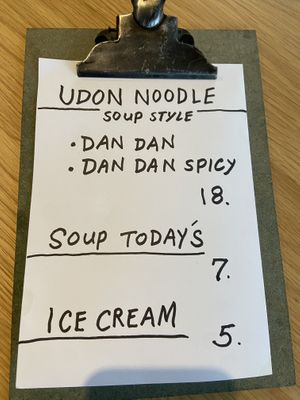 UDON NOODLE
SOUP STYLE
• DAN DAN
• DAN DAN SPICY
18.
SOUP TODAY'S
7.
ICE CREAM
5.